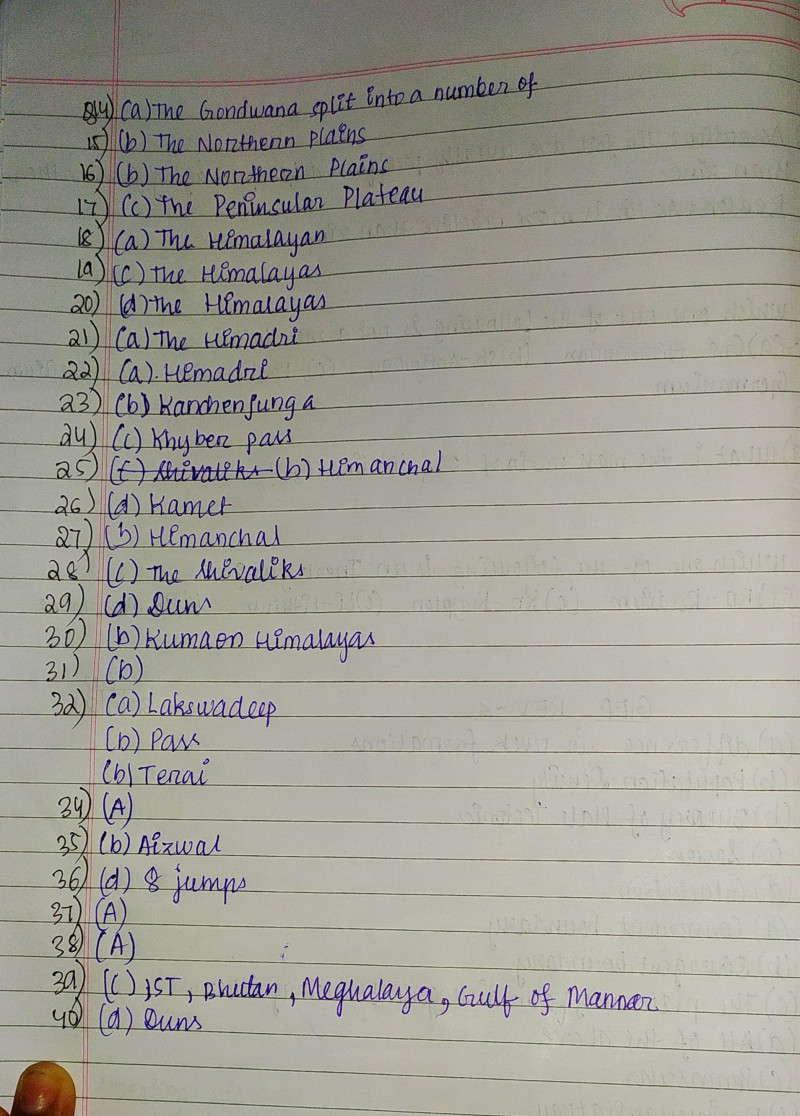 14) (a) The Gondwana split into a number of
15) (b) The Northern Plains
16) (b) The Northern Plains
17) (c) The Peninsular Plateau
18) (a) The Himalayan
19) (c) The Himalayas
20) (d) The Himalayas
21) (a) The Himadri
22) (a). Himadri
23) (b) Kanchenjunga
24) (c) Khyber pass
25) (c) Shivaliks (b) Himanchal
26) (d) Kamet
27) (b) Himanchal
28) (c) The Shivaliks
29) (d) Duns
30) (b) Kumaon Himalayas
31) (b)
32) (a) Lakswadeep
(b) Pass
(b) Terai
34) (A)
35) (b) Aizwal
36) (d) 8 jumps
37) (A)
38) (A)
39) (c) IST, Bhutan, Meghalaya, Gulf of Mannar
40) (d) Duns